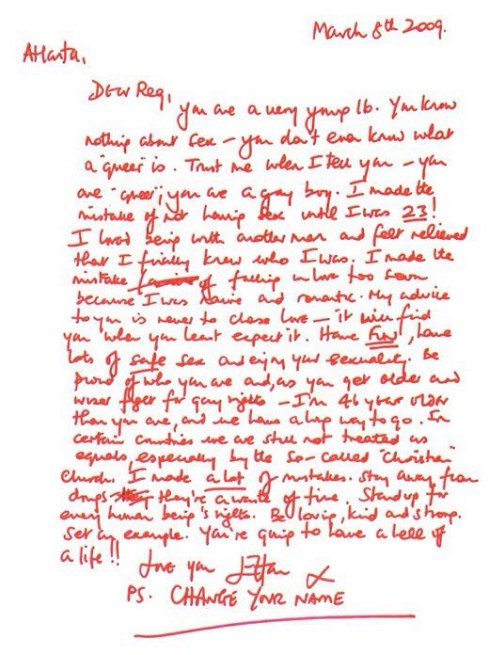 March 8th 2009.
Atlanta,
Dear Reg,
you are a very young 16. You know
nothing about sex – you don't even know what
a "queer" is. Trust me when I tell you – you
are "queer", you are a gay boy. I made the
mistake of not having sex until I was 23!
I loved being with another man and felt relieved
that I finally knew who I was. I made the
mistake of falling in love too soon
because I was naive and romantic. My advice
to you is never to chase love – it will find
you when you least expect it. Have FUN, have
lots of safe sex and enjoy your sexuality. Be
proud of who you are and, as you get older and
wiser fight for gay rights – I'm 46 years older
than you are, and we have a long way to go. In
certain countries we are still not treated as
equals, especially by the so-called "Christian"
church. I made a lot of mistakes. Stay away from
drugs they're a waste of time. Stand up for
every human being's rights. Be loving, kind and strong.
Set an example. You're going to have a hell of
a life!!
Love you Elton X
PS. CHANGE YOUR NAME